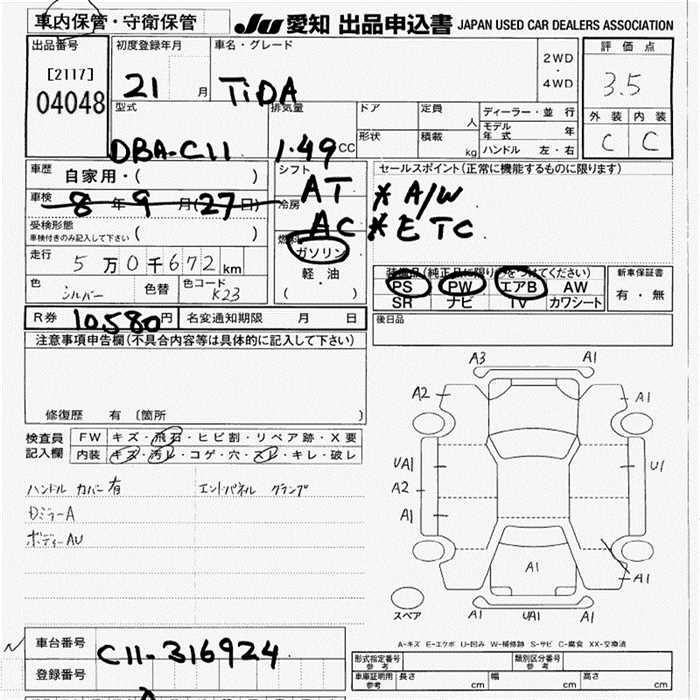 車内保管・守衛保管
JU 愛知 出品申込書 JAPAN USED CAR DEALERS ASSOCIATION
出品番号
[2117]
04048
初度登録年月
21 月
車名・グレード
TiDA
2WD
・
4WD
評価点
3.5
外装 内装
C C
型式
DBA-C11
排気量
1.49 CC
ドア
形状
定員 人
積載 kg
ディーラー・並行
モデル年式 年
ハンドル 左・右
車歴
自家用・( )
車検
8年9月(27日)
受検形態
車検付きのみ記入して下さい ( )
走行
5万0千672km
色
シルバー
色替
色コード
K23
シフト
AT
冷房
AC
燃料
ガソリン
軽・油
( )
セールスポイント(正常に機能するものに限ります)
* A/W
* ETC
装備品(純正品に限り○をつけてください)
PS PW エアB AW
SR ナビ TV カワシート
新車保証書
有・無
後日品
R券 10,580円 名変通知期限 月 日
注意事項申告欄(不具合内容等は具体的に記入して下さい)
修復歴 有 〔箇所 〕
検査員
記入欄
FW キズ・飛石・ヒビ割・リペア跡・X要
内装 キズ・汚レ・コゲ・穴・スレ・キレ・破レ
ハンドル カバー有 エンドパネル クランプ
Dミラー A
ボディー AU
A3 A1
A2 A1
UA1 U1
A2
A1
A1 A1
A1 UA1 A1
スペア
A-キズ E-エクボ U-凹み W-補修跡 S-サビ C-腐食 XX-交換済
車台番号
C11-316924
登録番号
形式指定番号
参考
類別区分番号
参考
車庫証明用
参考
長さ cm 幅 cm 高さ cm